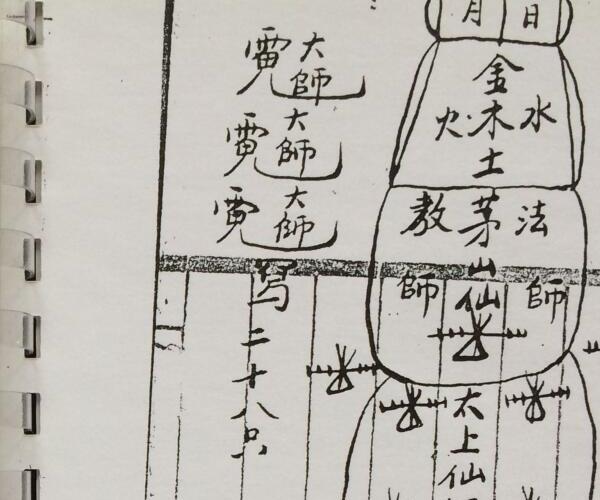 月 日
金
火 木 水
土
教 茅 法
山
師 仙 師
太上仙
大師
大師
大師
写二十八只